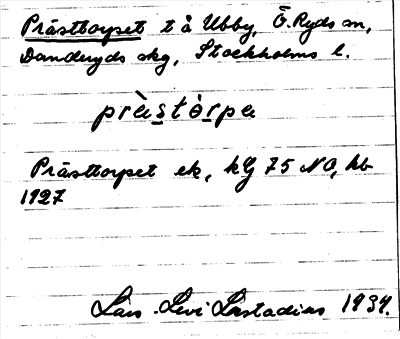 Prästtorpet t å Ubby, Ö. Ryds sn,
Danderyds skg, Stockholms l.
prästòrpa
Prästtorpet ek, kbl 75 NO, hb
1927
Lars-Levi Læstadius 1934.